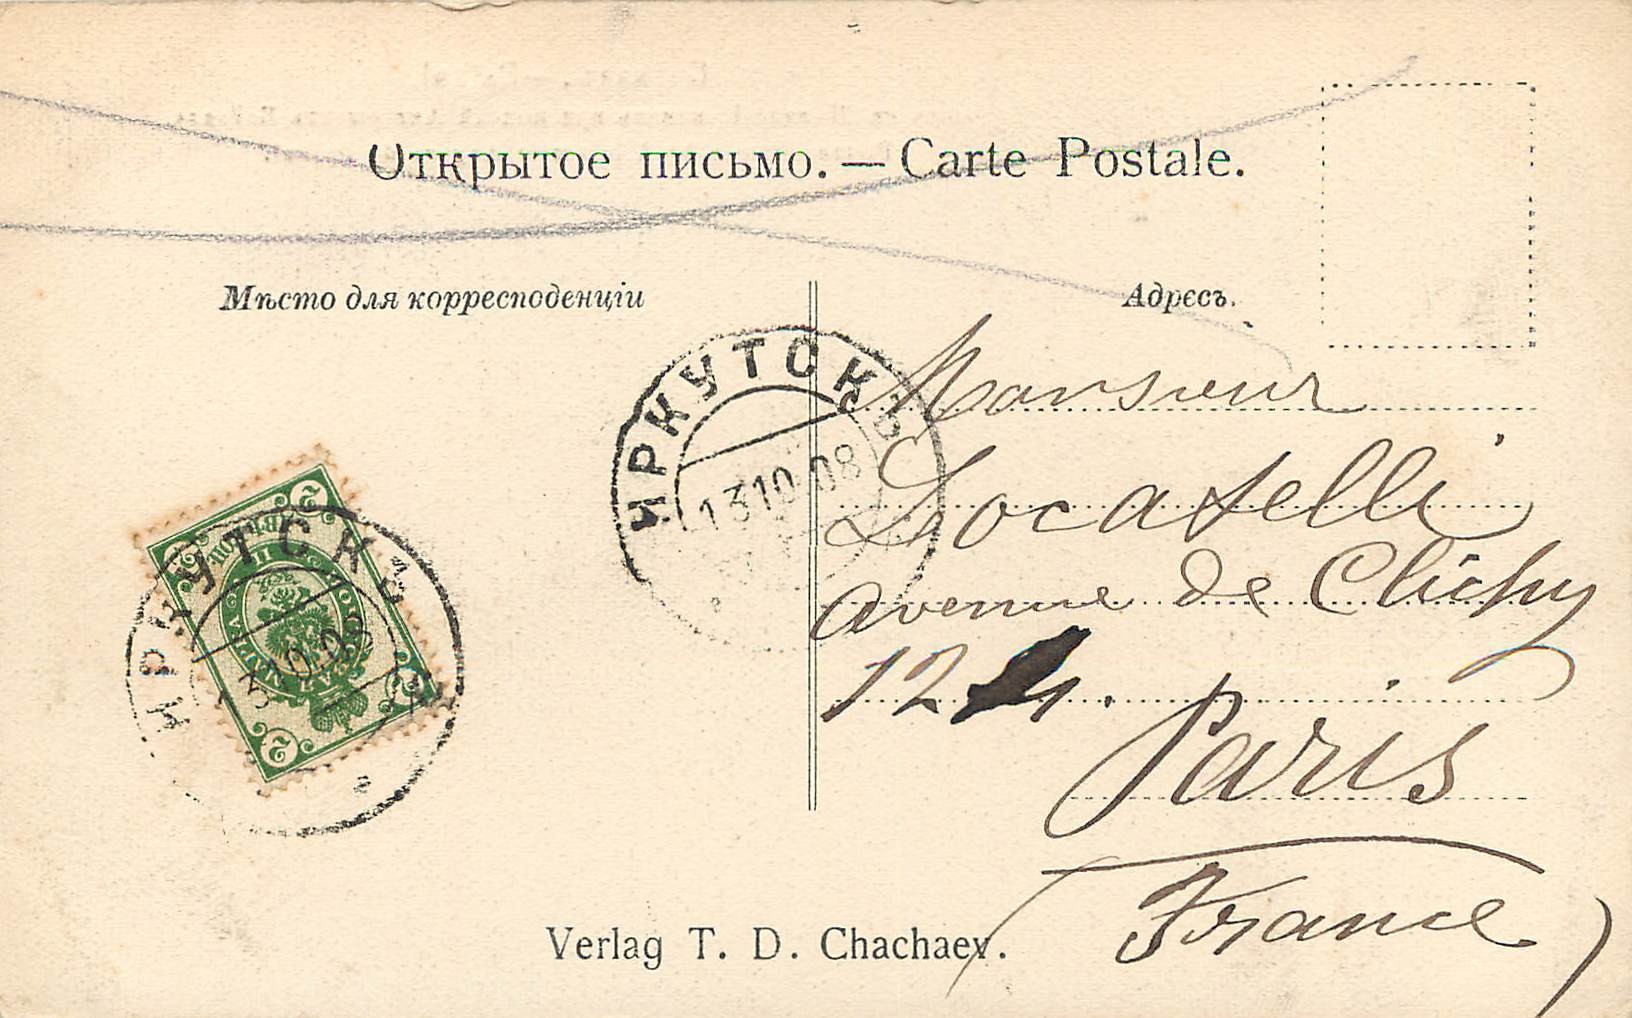 Открытое письмо. — Carte Postale.
Мѣсто для корресподенціи
Адресъ.
ИРКУТСКЪ
13 10 08
Monsieur
Locatelli
avenue de Clichy
12
Paris
France
ПОЧТОВАЯ МАРКА
2
2
2
2
ИРКУТСКЪ
13 10 08
Verlag T. D. Chachaev.